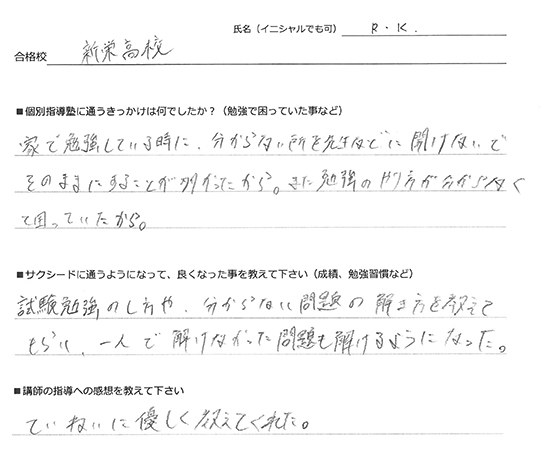 氏名（イニシャルでも可） R・K.
合格校 新栄高校
■個別指導塾に通うきっかけは何でしたか？（勉強で困っていた事など）
家で勉強している時に、分からない所を先生などに聞けないで
そのままにすることが多かったから。また勉強のやり方が分からなく
て困っていたから。
■サクシードに通うようになって、良くなった事を教えて下さい（成績、勉強習慣など）
試験勉強のし方や、分からない問題の解き方を教えて
もらい、一人で解けなかった問題も解けるようになった。
■講師の指導への感想を教えて下さい
ていねいに優しく教えてくれた。